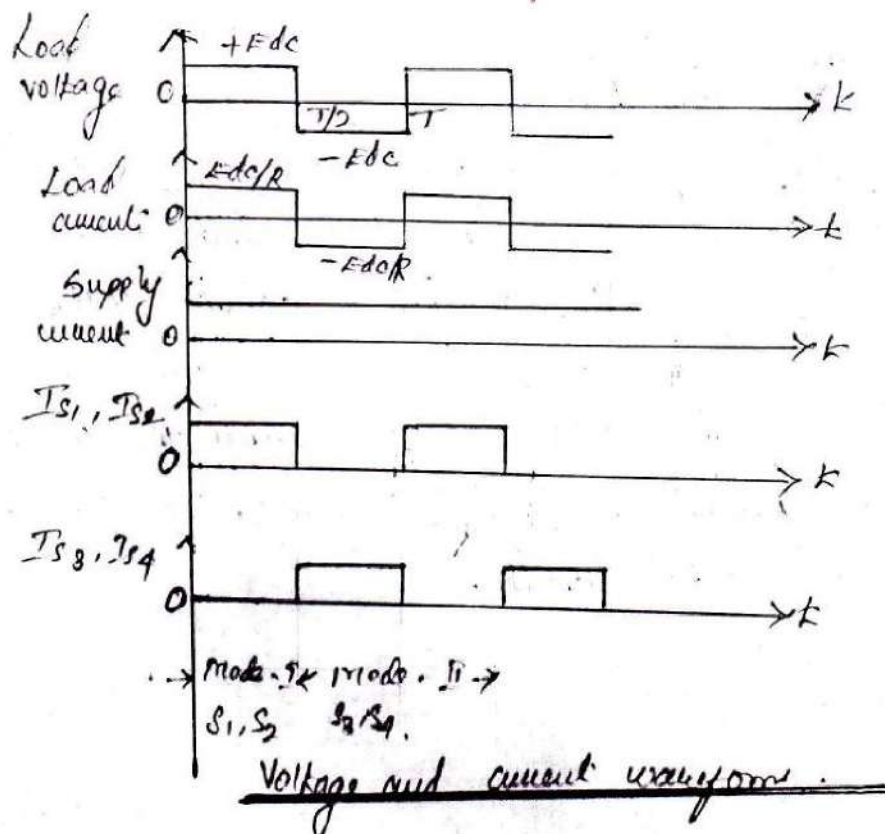 Load voltage
+Edc
0
T/2
T
t
-Edc
Load current
Edc/R
0
t
-Edc/R
Supply current
0
t
Is1, Is2
0
t
Is3, Is4
0
t
Mode. I Mode. II
S1, S2 S3, S4.
Voltage and current waveforms.